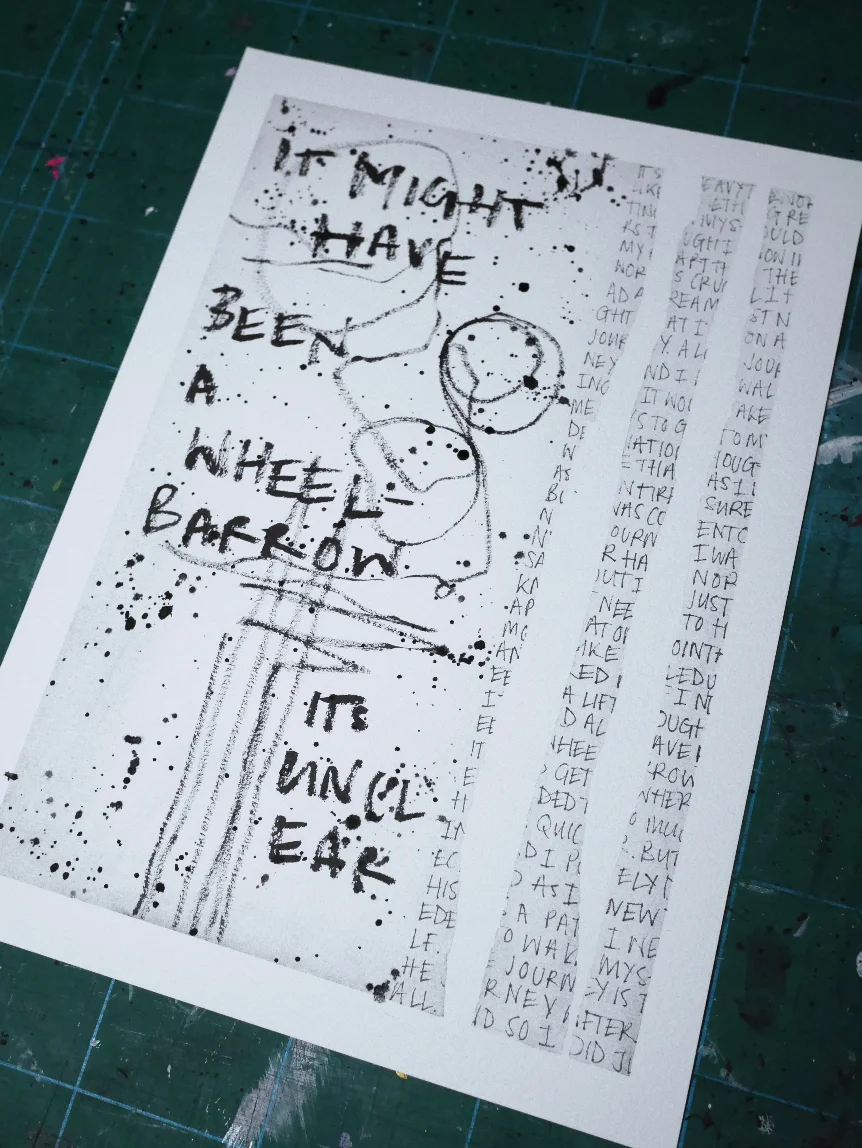 IT MIGHT
HAVE
BEEN
A
WHEEL-
BARROW
ITS
UNCL
EAR
IT'S
LIKE
TIN
RS T
MY
WOR
AD A
GHT
JOUR
NEY
ING
ME
DE
W
AS
BI
N
N
SA
KN
AP
MO
AN
EE
I
EE
IT
E
H
IN
EC
HIS
EDE
LF.
HE
ALL
EAVY
ETH
MYS
UGHT
ART TH
S CRU
REAM
AT I
Y. AL
ND I
IT WO
S TO G
ATIO
ETHA
NTIR
WAS CO
OURN
R HA
OUT I
NEE
ATO
AKE
ED
A LIFT
D AL
WHEE
GET
DED T
QUIC
D I P
AS I
S A PAT
O WAL
JOURN
RNEY
ID SO I
E NOT
G RE
OULD
ON I
THE
LIT
ST N
ON A
JOUR
WAL
AKE
TO M
OUGT
AS I
SURE
ENTO
I WA
NOR
JUST
TO H
OINT
LEDU
IN
OUGH
AVE
ROW
NTHER
BUT
ELY
NEW
I NE
MYS
EY IS T
AFTER
DID J